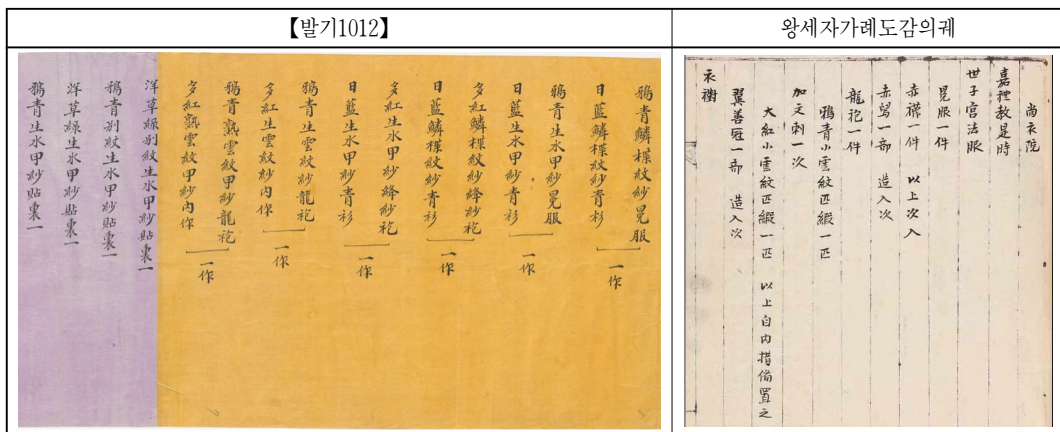 【발기1012】
왕세자가례도감의궤
鴉青鱗楪紋紗冕服
日藍鱗楪紋紗青衫
一作
鴉青生水甲紗冕服
日藍生水甲紗青衫
一作
多紅鱗楪紋紗絳紗袍
日藍鱗楪紋紗青衫
一作
多紅生水甲紗絳紗袍
日藍生水甲紗青衫
一作
鴉青生雲紋紗龍袍
多紅生雲紋紗內作
一作
鴉青熟雲紋甲紗龍袍
多紅熟雲紋甲紗內作
一作
洋草綠別紋生水甲紗貼裏一
鴉青別紋生水甲紗貼裏一
洋草綠生水甲紗貼裏一
鴉青生水甲紗貼裏一
尚衣院
嘉禮教是時
世子宮法服
冕服一件
赤襪一件 以上次入
赤舃一部 造入次
龍袍一件
鴉青小雲紋匹緞一匹
加文剌一次
大紅小雲紋匹緞一匹 以上自內措備置之
翼善冠一部 造入次
衣襨